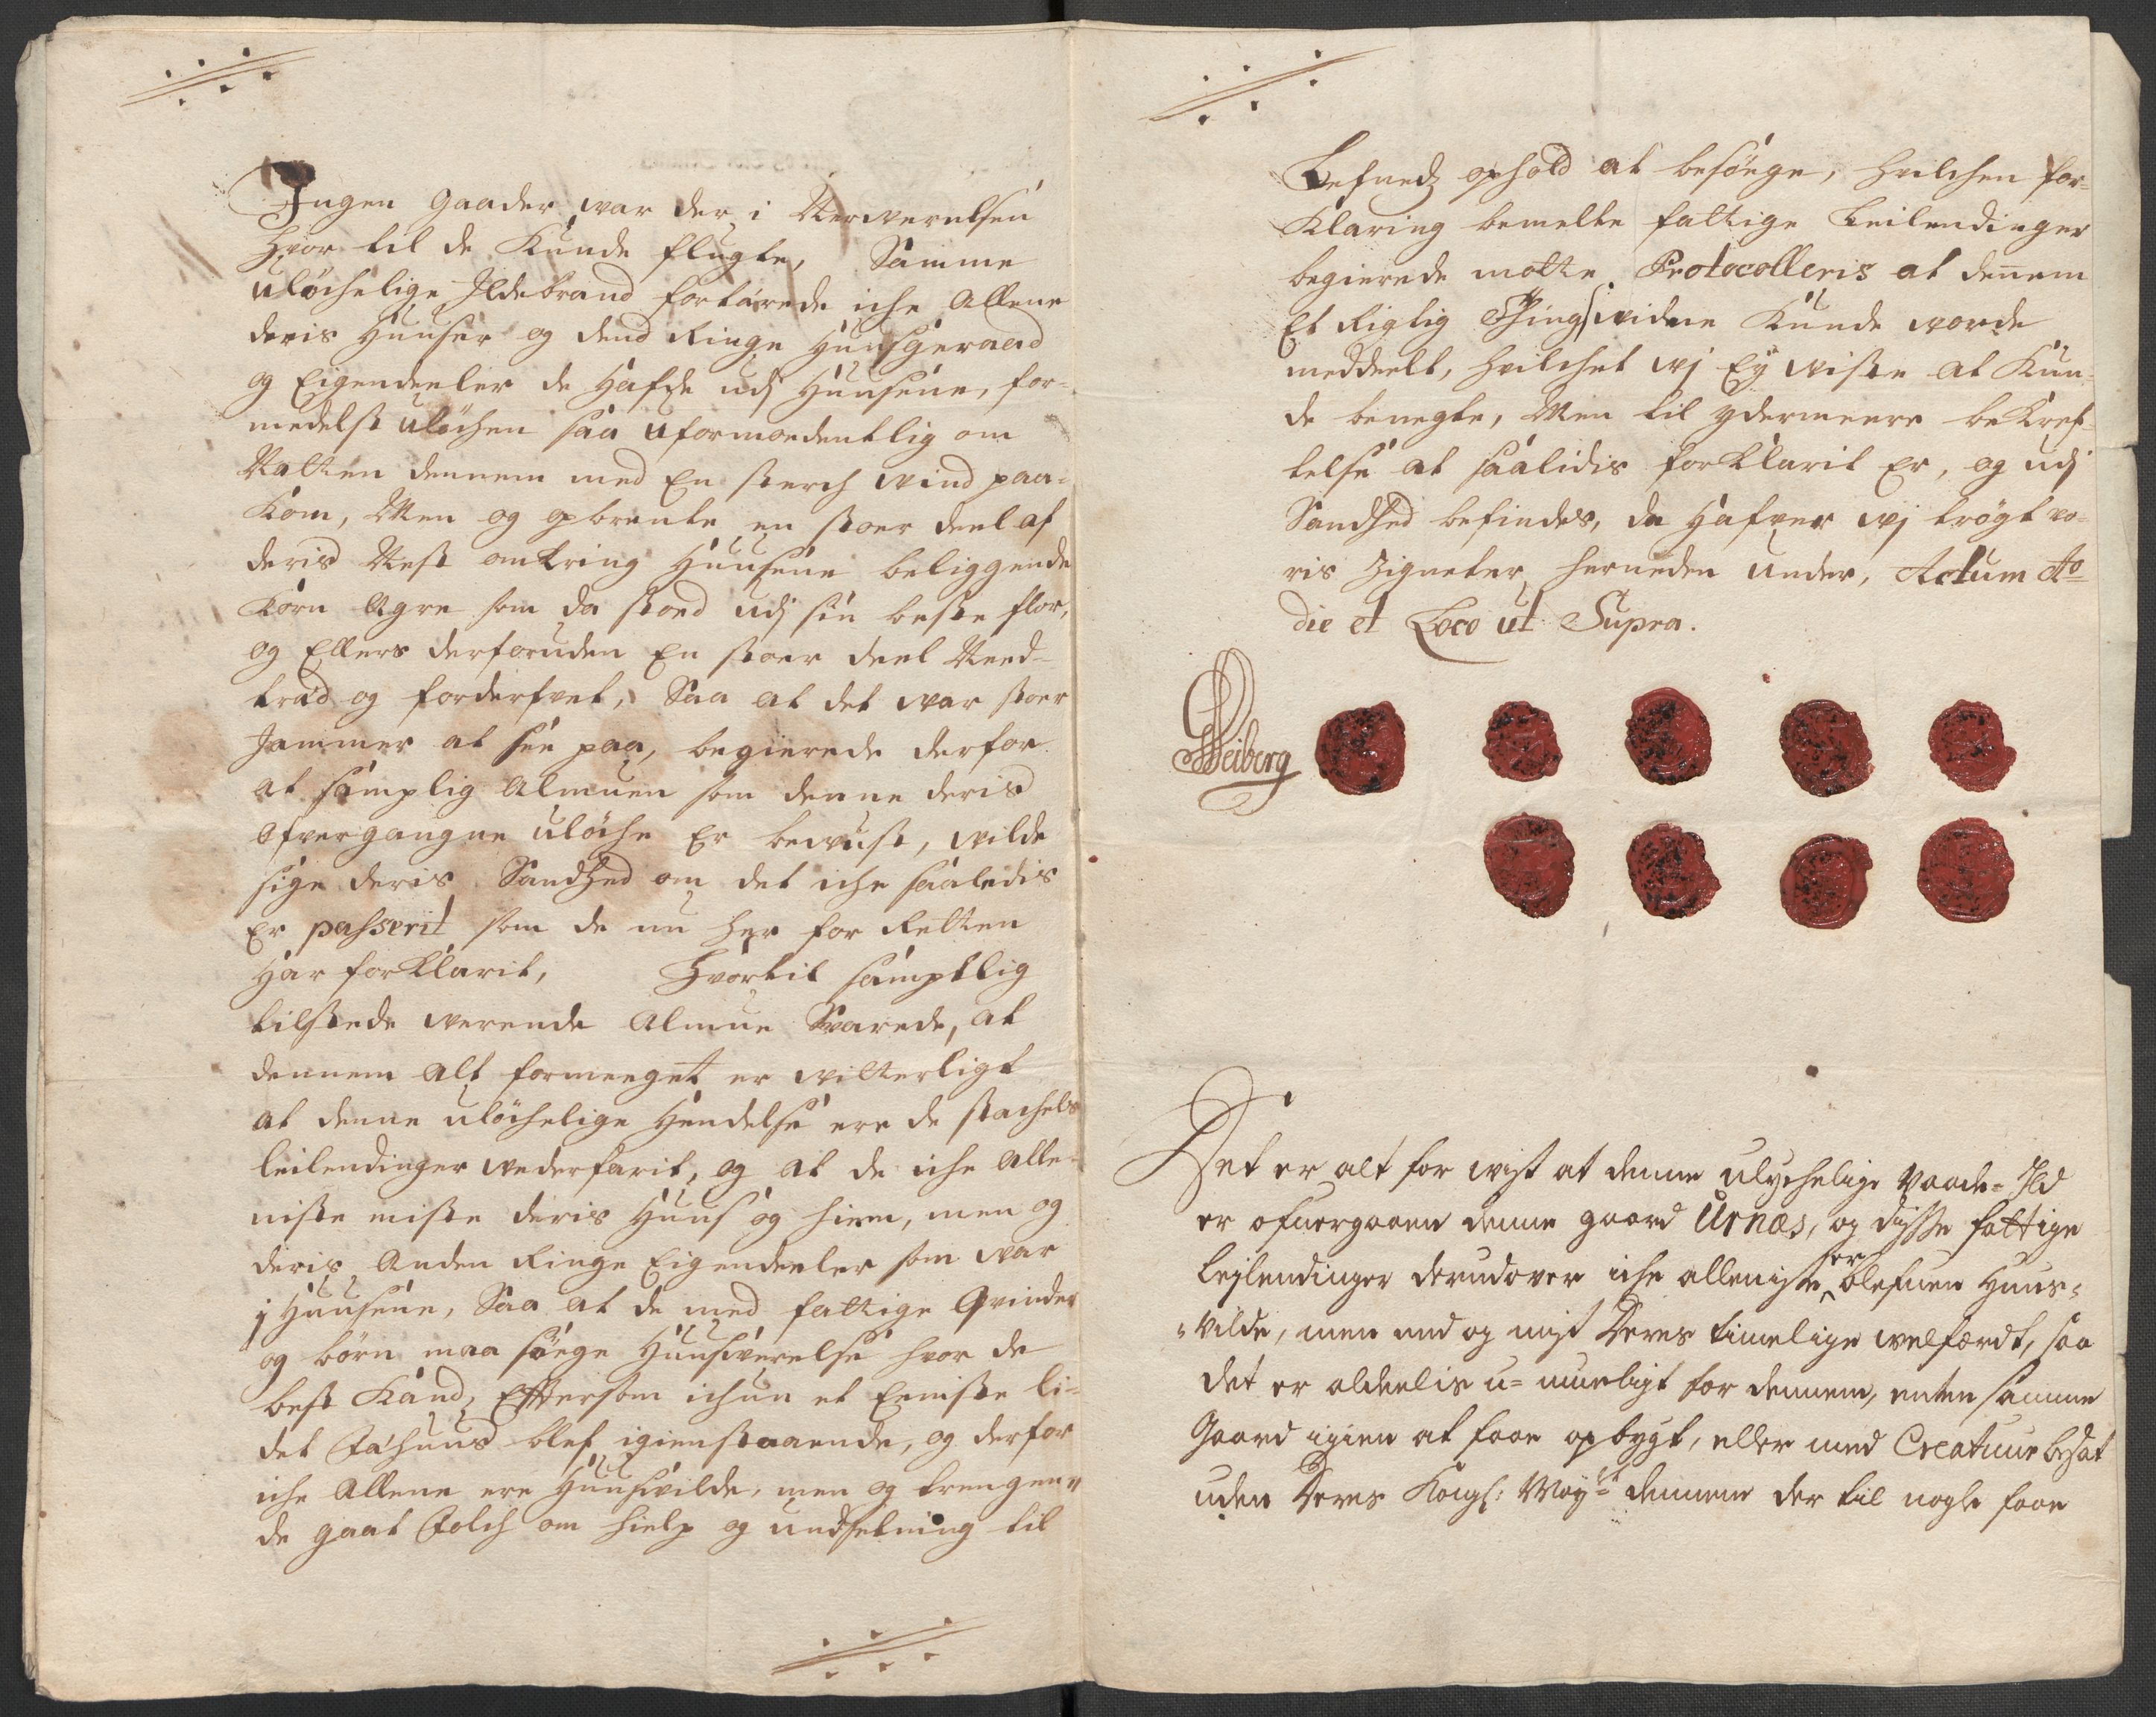 Ingen gaader war der i Nerwerelsen
hvor til de Kunde flugte, Samme
ulöchelige Ildebrand fortärede iche Allene
deris Huuser og dend Ringe Huusgeraad
og Eigendeeler de Hafde udj Huusene, for-
medelst ulöchen saa uformodentlig om
Natten dennem med En sterch Wind paa-
Kom, Men og opbrente en stoer deel af
deris Nest omkring Huusene beliggende
Korn Agre som da stoed udj sin beste flor,
og Ellers derforuden En stoer deel Need-
träd og forderfvet, Saa at det war stoer
Jammer at see paa, begierede derfor
at samptlig Almuen som denne deris
Ofvergangne ulöche Er bewust, wilde
sige deris Sandhed om det iche saaledis
Er passerit som de nu her for Retten
Har forklarit, Hvortil samptlig
tilstede werende Almue Swarede, at
dennem alt formeeget er witterligt
at denne ulöchelige Hendelse ere de stachels
leilendinger wederfarit, og at de iche Alle-
niste miste deris Huus og hiem, men og
deris Anden Ringe Eigendeeler som war
j Huusene, Saa at de med fattige Qvinder
og börn maa söege Huuswerelse hvor de
best Kand, Eftersom ichun et Eeniste li-
det Fæhuus blef igienstaaende, og derfor
iche Allene ere Huusvilde, men og trengen-
de gaat Folch om hielp og undsetning til
Lefnedz ophold at besöege, hvilchen for-
Klaring bemelte fattige Leilendinger
begierede motte Protocolleris at dennem
Et Rigtig Thingswidne Kunde worde
meddeelt, hvilchet wj Ey wiste at Kun-
de benegte, Men til ydermeere beKref-
telse at saalidis forklarit Er, og udj
Sandhed befindes, da Hafver wj trögt wo-
ris Zigneter herneden under, Actum Ao
die et Loco ut Supra.
Heiberg
Det er alt for wist at denne ulychelige Vaade-Ild
er ofuergaaen denne gaard Urnæs, og disse fattige
Lejlendinger derudover iche alleniste er blefuen Huus-
vilde, men end og mist Deres timelige welfærdt, saa
det er aldeelis u-mueligt for dennem, enten samme
Gaard igien at faae opbygt, eller med Creatuur besat
uden Deres Kongl: Mayst dennem der til nogle faae